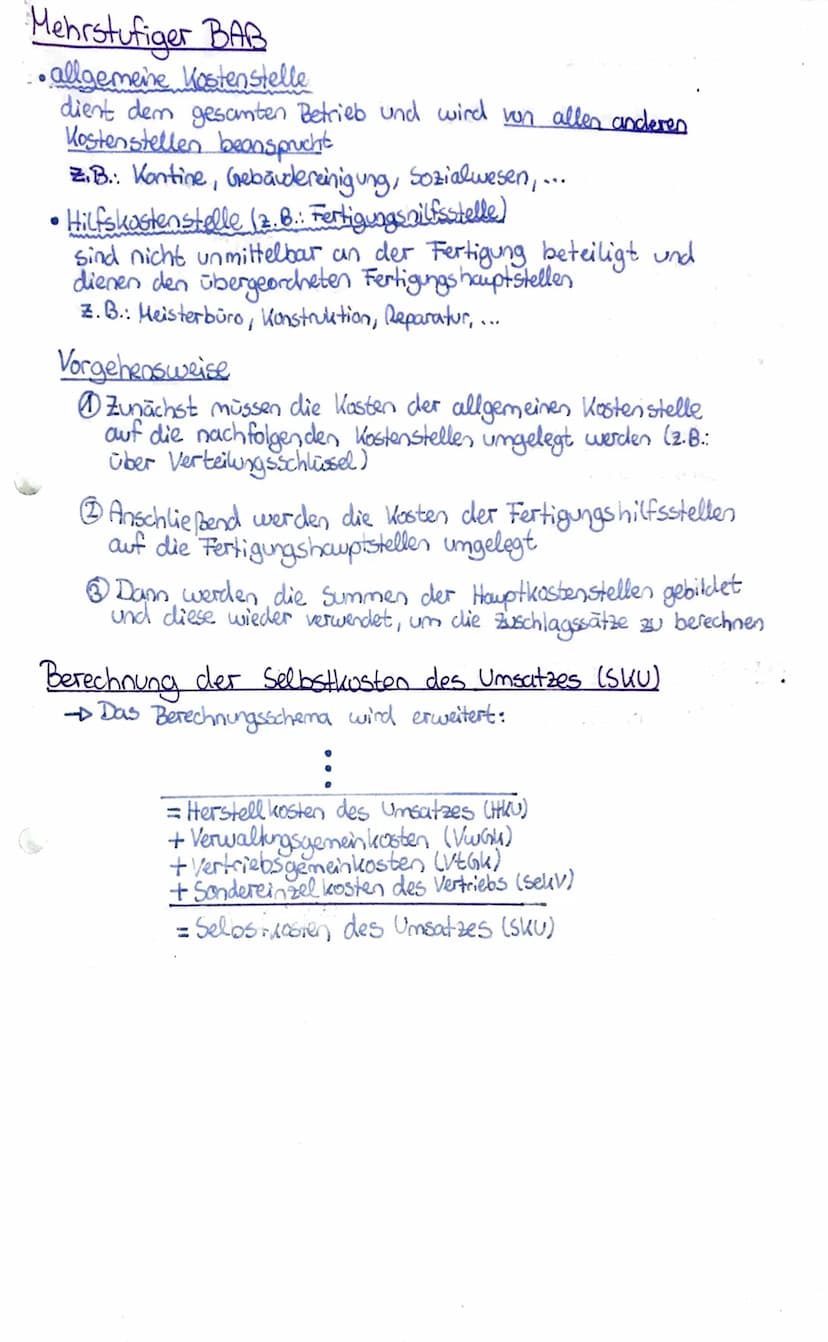 Mehrstufiger BAB
• allgemeine Kostenstelle
dient dem gesamten Betrieb und wird von allen anderen
Kostenstellen beansprucht
Z.B.: Kantine, Gebäudereinigung, Sozialwesen, ...
• Hilfskostenstelle (z.B.: Fertigungshilfsstelle)
sind nicht unmittelbar an der Fertigung beteiligt und
dienen den übergeordneten Fertigungshauptstellen
Z.B.: Meisterbüro, Konstruktion, Reparatur, ...
Vorgehensweise
① Zunächst müssen die Kosten der allgemeinen Kostenstelle
auf die nachfolgenden Kostenstellen umgelegt werden (z.B.:
über Verteilungsschlüssel)
② Anschließend werden die Kosten der Fertigungshilfsstellen
auf die Fertigungshauptstellen umgelegt
③ Dann werden die Summen der Hauptkostenstellen gebildet
und diese wieder verwendet, um die Zuschlagssätze zu berechnen
Berechnung der Selbstkosten des Umsatzes (SKU)
→ Das Berechnungsschema wird erweitert:
⋮
= Herstellkosten des Umsatzes (HKU)
+ Verwaltungsgemeinkosten (VwGK)
+ Vertriebsgemeinkosten (VtGK)
+ Sondereinzelkosten des Vertriebs (SEKV)
= Selbstkosten des Umsatzes (SKU)